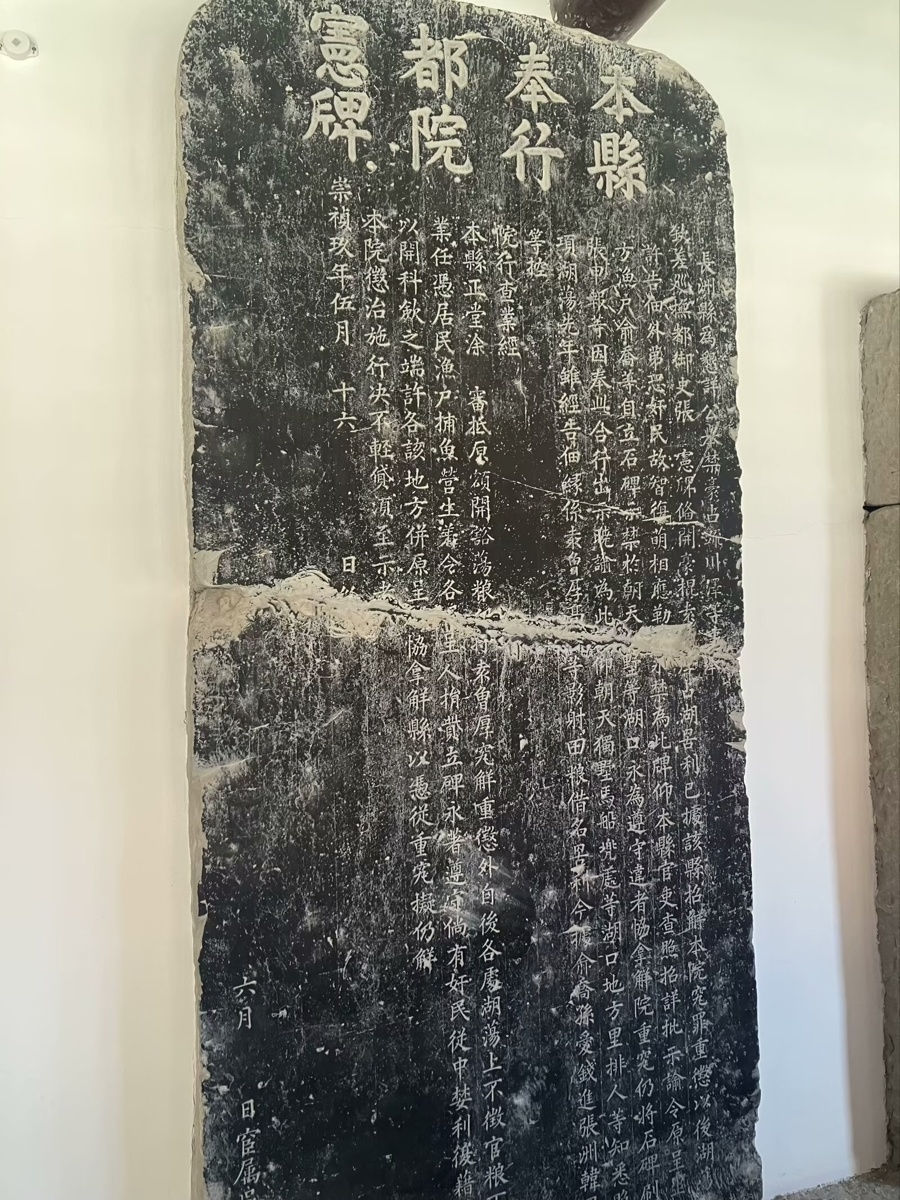 本縣
奉行
都院
憲牌
長洲縣為懇詳公永禁豪占流川洋等
欽差巡撫都御史張 憲牌俻開豪棍 占湖罟利已據該縣招解本院究罪重懲以後湖
許告佃外弟恐奸民故智復萌相應勒 永禁為此牌仰本縣官吏查照招詳批示諭令原呈地
方漁尸俞喬等自立石碑示禁於朝天 等湖口永為遵守違者協拿解院重究仍將石碑
張申報等因奉此合行出示曉諭為此 仰朝天獨墅馬船兜蕩等湖口地方里排人等知悉
項湖蕩先年雖經告佃 係 魯厚 等影射田粮借名罟利今據俞喬孫愛錢進張洲韓
等抢
院行查業經
本縣正堂涂 審抵原領開豁蕩粮 魯厚究解重懲外自後各處湖蕩上不徵官粮
業任憑居民漁户捕魚營生着令各 主人捐貲立碑永著遵守倘有奸民從中婪利復藉
以開科歛之端許各該地方併原主 協拿解縣以憑從重究擬仍解
本院懲治施行决不輕貸須至示者
崇禎玖年伍月 十六 日
六月 日宦属